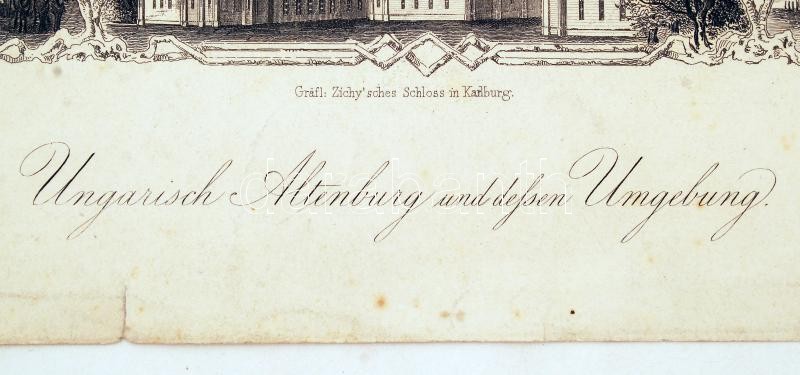 Gräfl: Zichy'sches Schloss in Karlburg.
Ungarisch Altenburg und deſsen Umgebung.